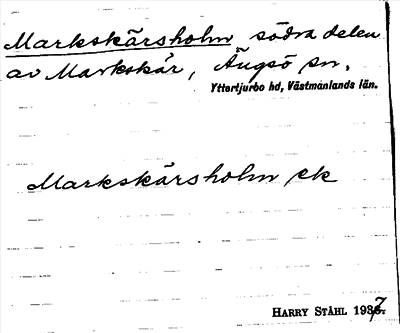 Markskärsholm södra delen
av Markskär, Ängsö sn,
Yttertjurbo hd, Västmanlands län.
Markskärsholm, ek
HARRY STÅHL 1937.